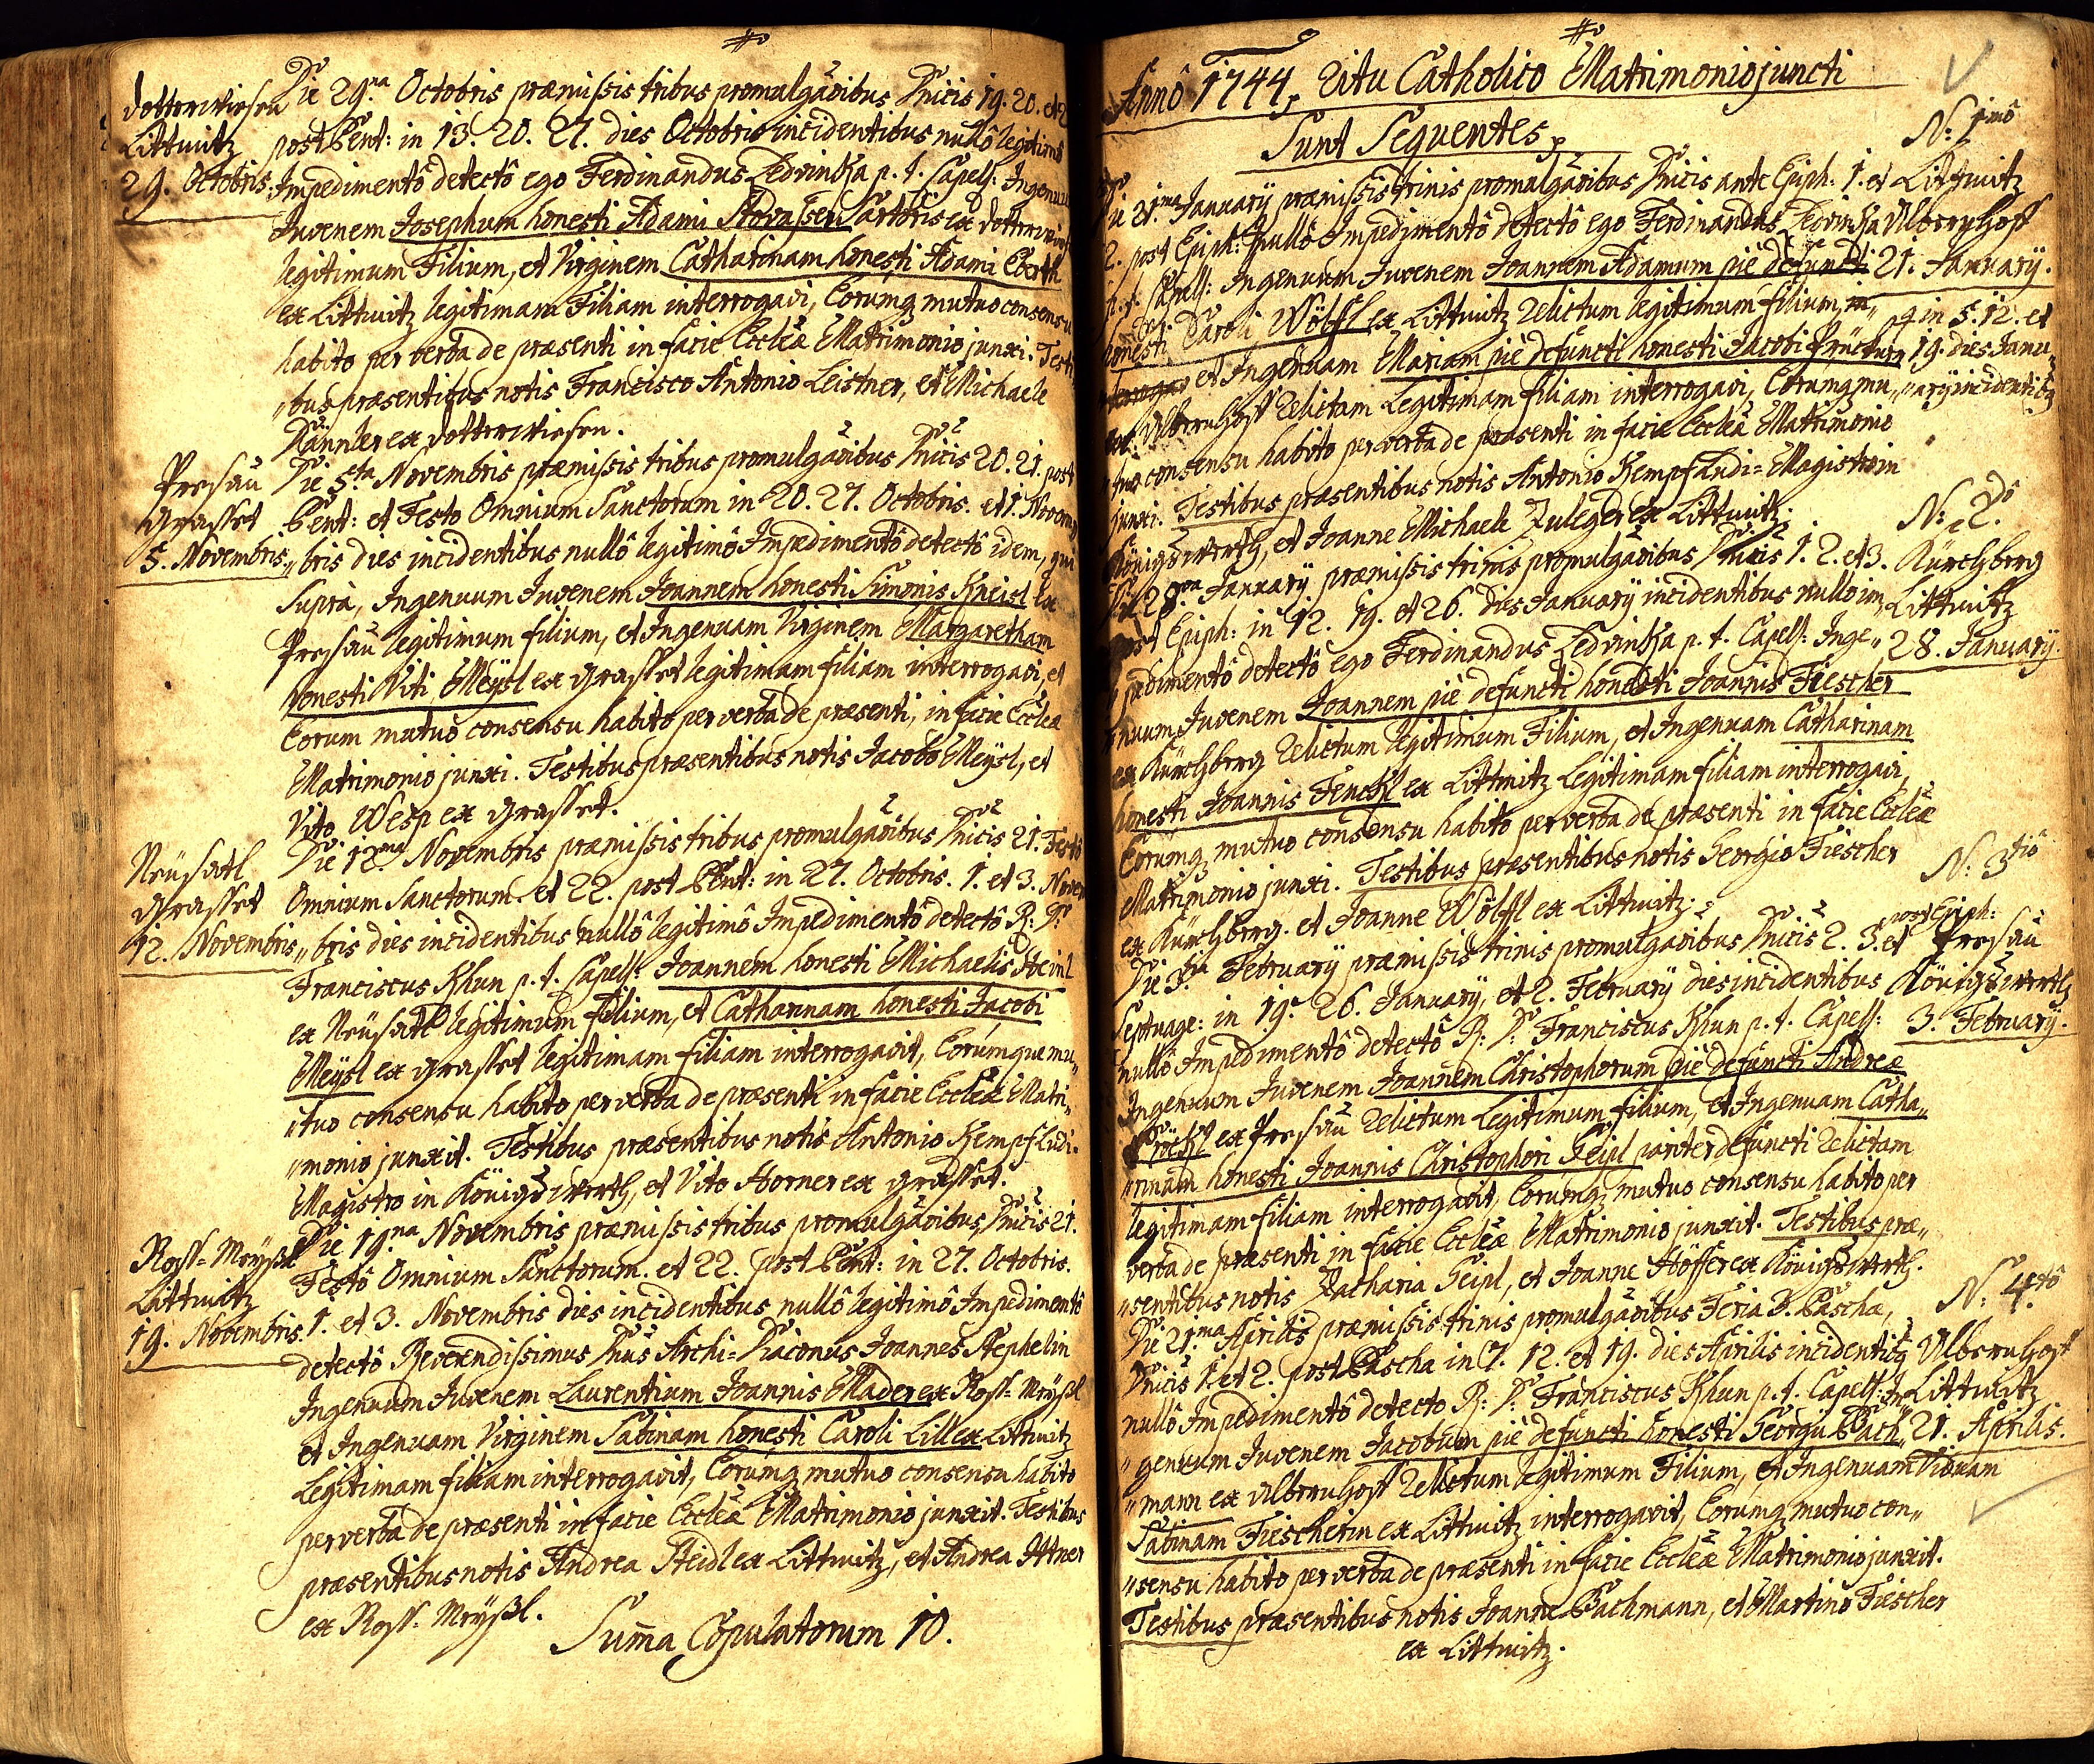 Dotterwiesen
Littmitz
29. Octobris.
Die 29.na Octobris præmissis tribus promulgãoibus Dñicis 19. 20. et
post Pent: in 13. 20. 27. dies Octobris incidentibus nullô legitimô
Impedimentô detectô ego Ferdinandus Ledvinka p. t. Capell: Ingenuum
Juvenem Josephum honesti Adami Sartoris ex Dotterwies
legitimum Filium, et Virginem Catharinam honesti Adami Eberth
ex Littmitz legitimam Filiam interrogavi, Eorumq mutuo consensu
habito per verba de præsenti in facie Eccleæ Matrimonio junxi. Testi
"bus præsentibus notis Francisco Antonio Leistner, et Michaele
ex Dotterwiesen.
Presau
Grasset
5. Novembris.
Die 5ta Novembris præmissis tribus promulgãoibus Dñicis 20. 21. post
Pent: et Festo Omnium Sanctorum in 20. 27. Octobris. et 1. Novem
"bris dies incidentibus nullô legitimô Impedimentô detectô idem, qui
Supra, Ingenuum Juvenem Joannem honesti Simonis Kneisl ex
Presau legitimum filium, et Ingenuam Virginem Margaretham
honesti Viti Meÿsl ex Grasset legitimam filiam interrogavi, et
Eorum mutuo consensu habito per verba de præsenti, in facie Eccleæ
Matrimonio junxi. Testibus præsentibus notis Jacobo Meÿsl, et
Vito Wesp ex Grasset.
Neüsatl
Grasset
12. Novembris
Die 12.ma Novembris præmissis tribus promulgãoibus Dñicis 21. Festô
Omnium Sanctorum. et 22. post Pent: in 27. Octobris. 1. et 3. Novem
"bris dies incidentibus nullô legitimô Impedimentô detectô R: D:
Franciscus Khun p. t. Capell: Joannem honesti Michaelis Heinl
ex Neüsatl legitimum filium, et Catharinam honesti Jacobi
Meÿsl ex Grasset legitimam filiam interrogavit, Eorumque mu"
"tuo consensu habito per verba de præsenti in facie Eccleæ Matri"
"monio junxit. Testibus præsentibus notis Antonio Kempf Ludi-
Magistro in Königswerth, et Vito Horner ex Grasset.
Ross-Meÿßl
Littmitz
19. Novembris.
Die 19.na Novembris præmissis tribus promulgãoibus Dñicis 21.
Festô Omnium Sanctorum. et 22. post Pent: in 27. Octobris.
1. et 3. Novembris dies incidentibus nullô legitimô Impedimentô
detectô Reverendissimus Dñus Archi-Diaconus Joannes Stephelin
Ingenuum Juvenem Laurentium Joannis Mader ex Ross-Meÿßl
et Ingenuam Virginem Sabinam honesti Caroli Lill ex Littmitz
Legitimam filiam interrogavit, Eorumq mutuo consensu habito
per verba de præsenti in facie Eccleæ Matrimonio junxit. Testibus
præsentibus notis Andrea Steidl ex Littmitz, et Andrea Ittner
ex Ross-Meÿßl.
Suma Copulatorum 10.
Annô 1744, Ritu Catholico Matrimonio juncti
Sunt Sequentes,
N: 1mô
Littmitz
Albernhoff
21. Januarÿ.
q in 5. 12. et
19. dies Janu"
"arÿ incidentibq
Die 21.ma Januarÿ præmissis trinis promulgãoibus Dñicis ante Epiph: 1. et
2. post Epiph: nullô Impedimentô detectô ego Ferdinandus Ledvinka
p. t. Capell: Ingenuum Juvenem Joannem Adamum piè defuncti
honesti Caroli Wölfl ex Littmitz Relictum legitimum filium,
et Ingenuam Mariam piè defuncti honesti Jacobi
ex Albernhoff Relictam Legitimam filiam interrogavi, Eorumq mu"
"tuo consensu habito per verba de præsenti in facie Eccleæ Matrimonio
junxi. Testibus præsentibus notis Antonio Kempf Ludi-Magistro in
Königswerth, et Joanne Michaele Zuleger ex Littmitz.
N: 2.dô
Kürchberg
Littmitz
28. Januarÿ.
Die 28.va Januarÿ præmissis trinis promulgãoibus Dñicis 1. 2. et 3.
post Epiph: in 12. 19. et 26. dies Januarÿ incidentibus nullo im"
"pedimentô detectô ego Ferdinandus Ledvinka p. t. Capell: Inge"
"nuum Juvenem Joannem piè defuncti honesti Joannis Fiescher
ex Kürchberg Relictum legitimum Filium, et Ingenuam Catharinam
honesti Joannis Fenckl ex Littmitz Legitimam filiam interrogavi,
Eorumq mutuo consensu habito per verba de præsenti in facie Eccleæ
Matrimonio junxi. Testibus præsentibus notis Georgio Fiescher
ex Kürchberg. et Joanne Wölfl ex Littmitz.
N: 3tiô
Presau
Königswerth
3. Februarÿ.
Die 3.tia Februarÿ præmissis trinis promulgãoibus Dñicis 2. 3. post Epiph: et
Septuage: in 19. 26. Januarÿ, et 2. Februarÿ dies incidentibus
nullô Impedimentô detectô R: D: Franciscus Khun p. t. Capell:
Ingenuum Juvenem Joannem Christophorum piè defuncti Andreæ
ex Presau Relictum Legitimum filium, et Ingenuam Catha"
"rinam honesti Joannis Christophori Seipl pariter defuncti Relictam
legitimam filiam interrogavit, Eorumq mutuo consensu habito per
verba de præsenti in facie Eccleæ Matrimonio junxit. Testibus præ"
"sentibus notis Zacharia Seipl, et Joanne Höffer ex Königswerth.
N: 4.tô
Albernhoff
Littmitz
21. Aprilis.
Die 21.ma Aprilis præmissis trinis promulgãoibus Feria 3. Pascha,
Dñicis 1. et 2. post Pascha in 7. 12. et 19. dies Aprilis incidentibq
nullô Impedimentô detecto R: D: Franciscus Khun p. t. Capell: In
"genuum Juvenem Jacobum piè defuncti honesti Georgii Bach"
"mann ex Albernhoff Relictum legitimum Filium, et Ingenuam Viduam
Sabinam Fiescherin ex Littmitz interrogavit, Eorumq mutuo con"
"sensu habito per verba de præsenti in facie Eccleæ Matrimonio junxit.
Testibus præsentibus notis Joanne Bachmann, et Martino Fiescher
ex Littmitz.